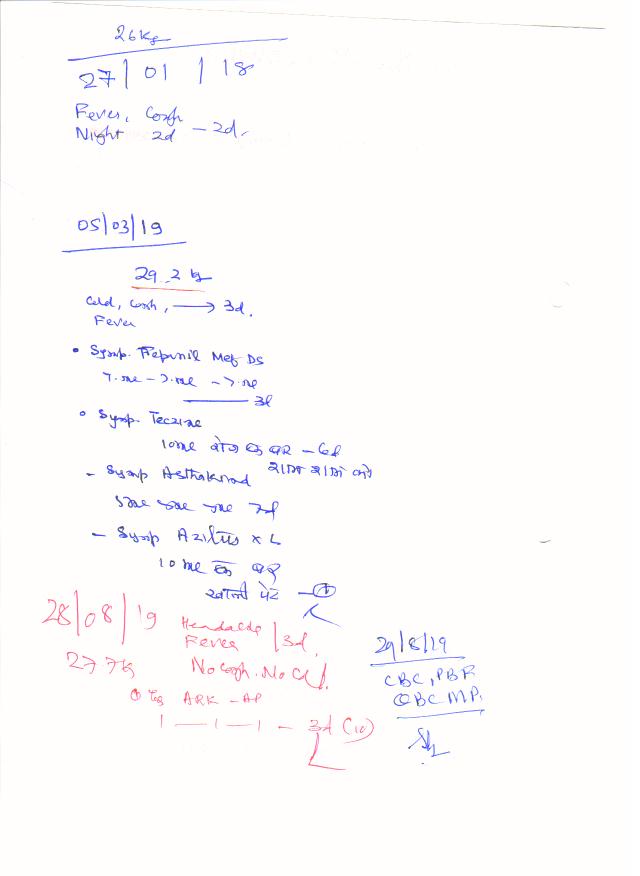 26 Kg
27 | 01 | 18
Fever, Cough
Night 2d - 2d.
05/03/19
29.2 kg
Cold, Cough, → 3d.
Fever
• Syrup. Mef DS
7.ml - 7.ml - 7.ml
3d
• Syrup. Teczine
10ml रोज एक बार - 6d
शाम शाम को
- Syrup Asthakind
5ml 5ml 5ml 7d
- Syrup XL
10 ml एक बार
खाली पेट - ①
28/08/19 Headache | 3d.
Fever
27.7 Kg No Cough. No Cold.
① Tab ARK - AP
1 — 1 — 1 - 3d (10)
29/8/19
CBC, PBF
QBC M.P.